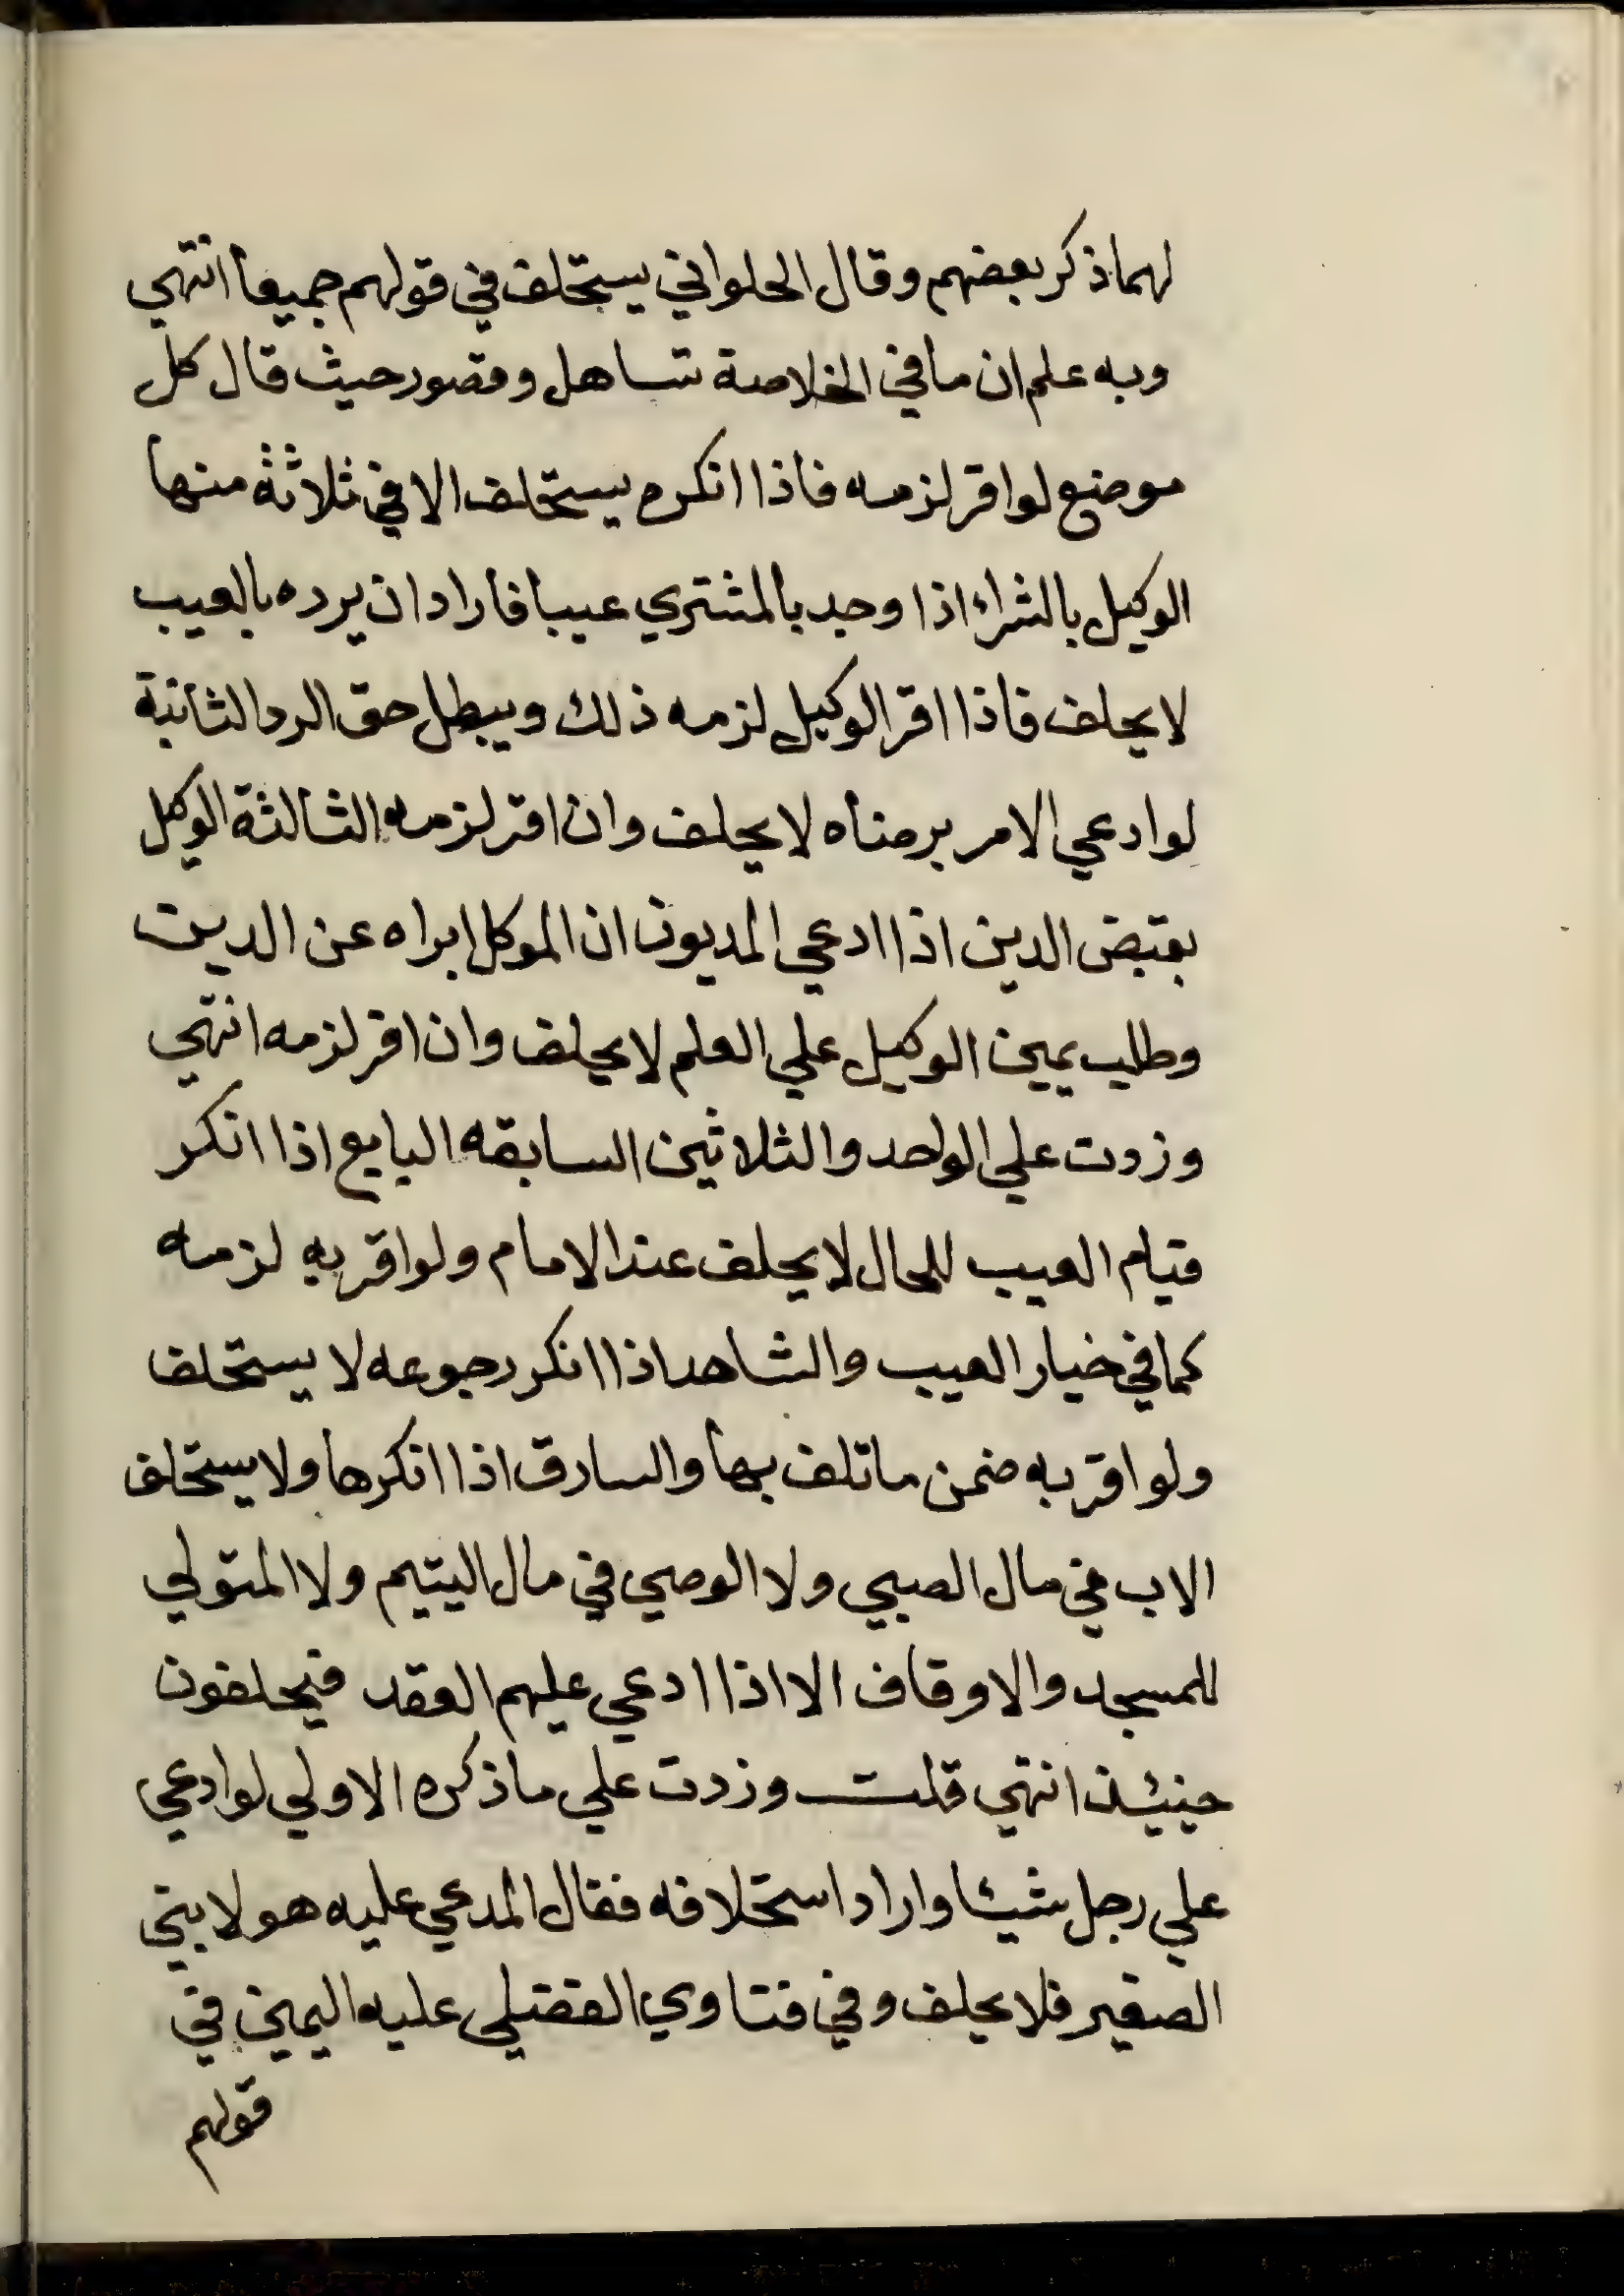 لهما ذكر بعضهم وقال الحلواني يستحلف في قولهم جميعا انتهي
وبه علم ان ما في الخلاصة تساهل وقصور حيث قال كل
موضع لو اقر لزمه فاذا انكره يستحلف الا في ثلاثة منها
الوكيل بالشراء اذا وجد بالمشتري عيبا فاراد ان يرده بالعيب
لا يحلف فاذا اقر الوكيل لزمه ذلك ويبطل حق الرد الثانية
لو ادعي الامر برضاه لا يحلف وان اقر لزمه الثالثة الوكيل
بقبض الدين اذا ادعي المديون ان الموكل ابراه عن الدين
وطلب يمين الوكيل علي العلم لا يحلف وان اقر لزمه انتهي
وزدت علي الواحد والثلاثين السابقه البايع اذا انكر
قيام العيب للحال لا يحلف عند الامام ولو اقر به لزمه
كما في خيار العيب والشاهد اذا انكر رجوعه لا يستحلف
ولو اقر به ضمن ما تلف بها والسارق اذا انكرها ولا يستحلف
الاب في مال الصبي ولا الوصي في مال اليتيم ولا المتولي
للمسجد والاوقاف الا اذا ادعي عليهم العقد فيحلفون
حينئذ انتهي قلت وزدت علي ما ذكره الاولي لو ادعي
علي رجل شيئا واراد استحلافه فقال المدعي عليه هو لابني
الصغير فلا يحلف وفي فتاوي الفضلي عليه اليمين في
قولهم